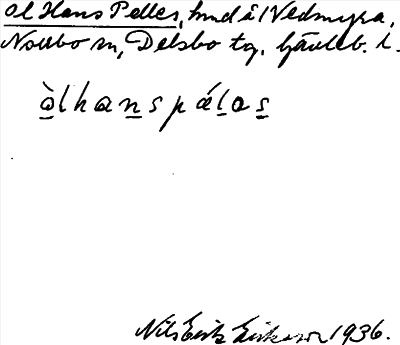 Ol Hans Pelles, hmd å 1 Vedmyra,
Norrbo sn, Delsbo tg. Gävleb. l.
àlhanspálas
Nils Erik Eriksson 1936.